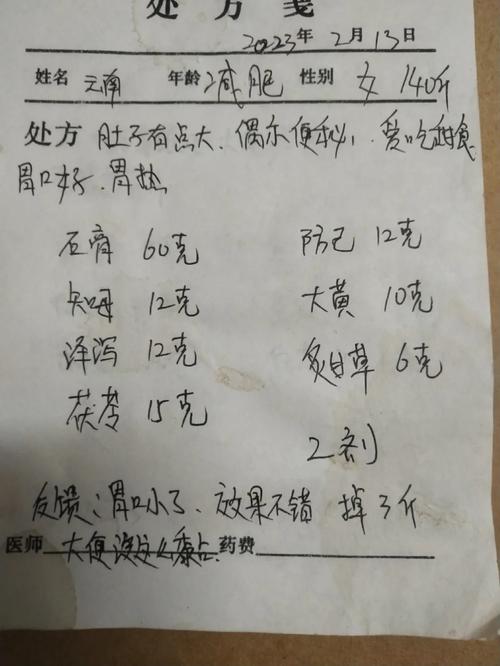 处方笺
2023年2月13日
姓名 云南 年龄 减肥 性别 女 140斤
处方 肚子有点大、偶尔便秘,爱吃甜食
胃口好、胃热
石膏 60克 防己 12克
知母 12克 大黄 10克
泽泻 12克 炙甘草 6克
茯苓 15克
2剂
反馈:胃口小了、效果不错 掉了斤
医师 大便没 药费